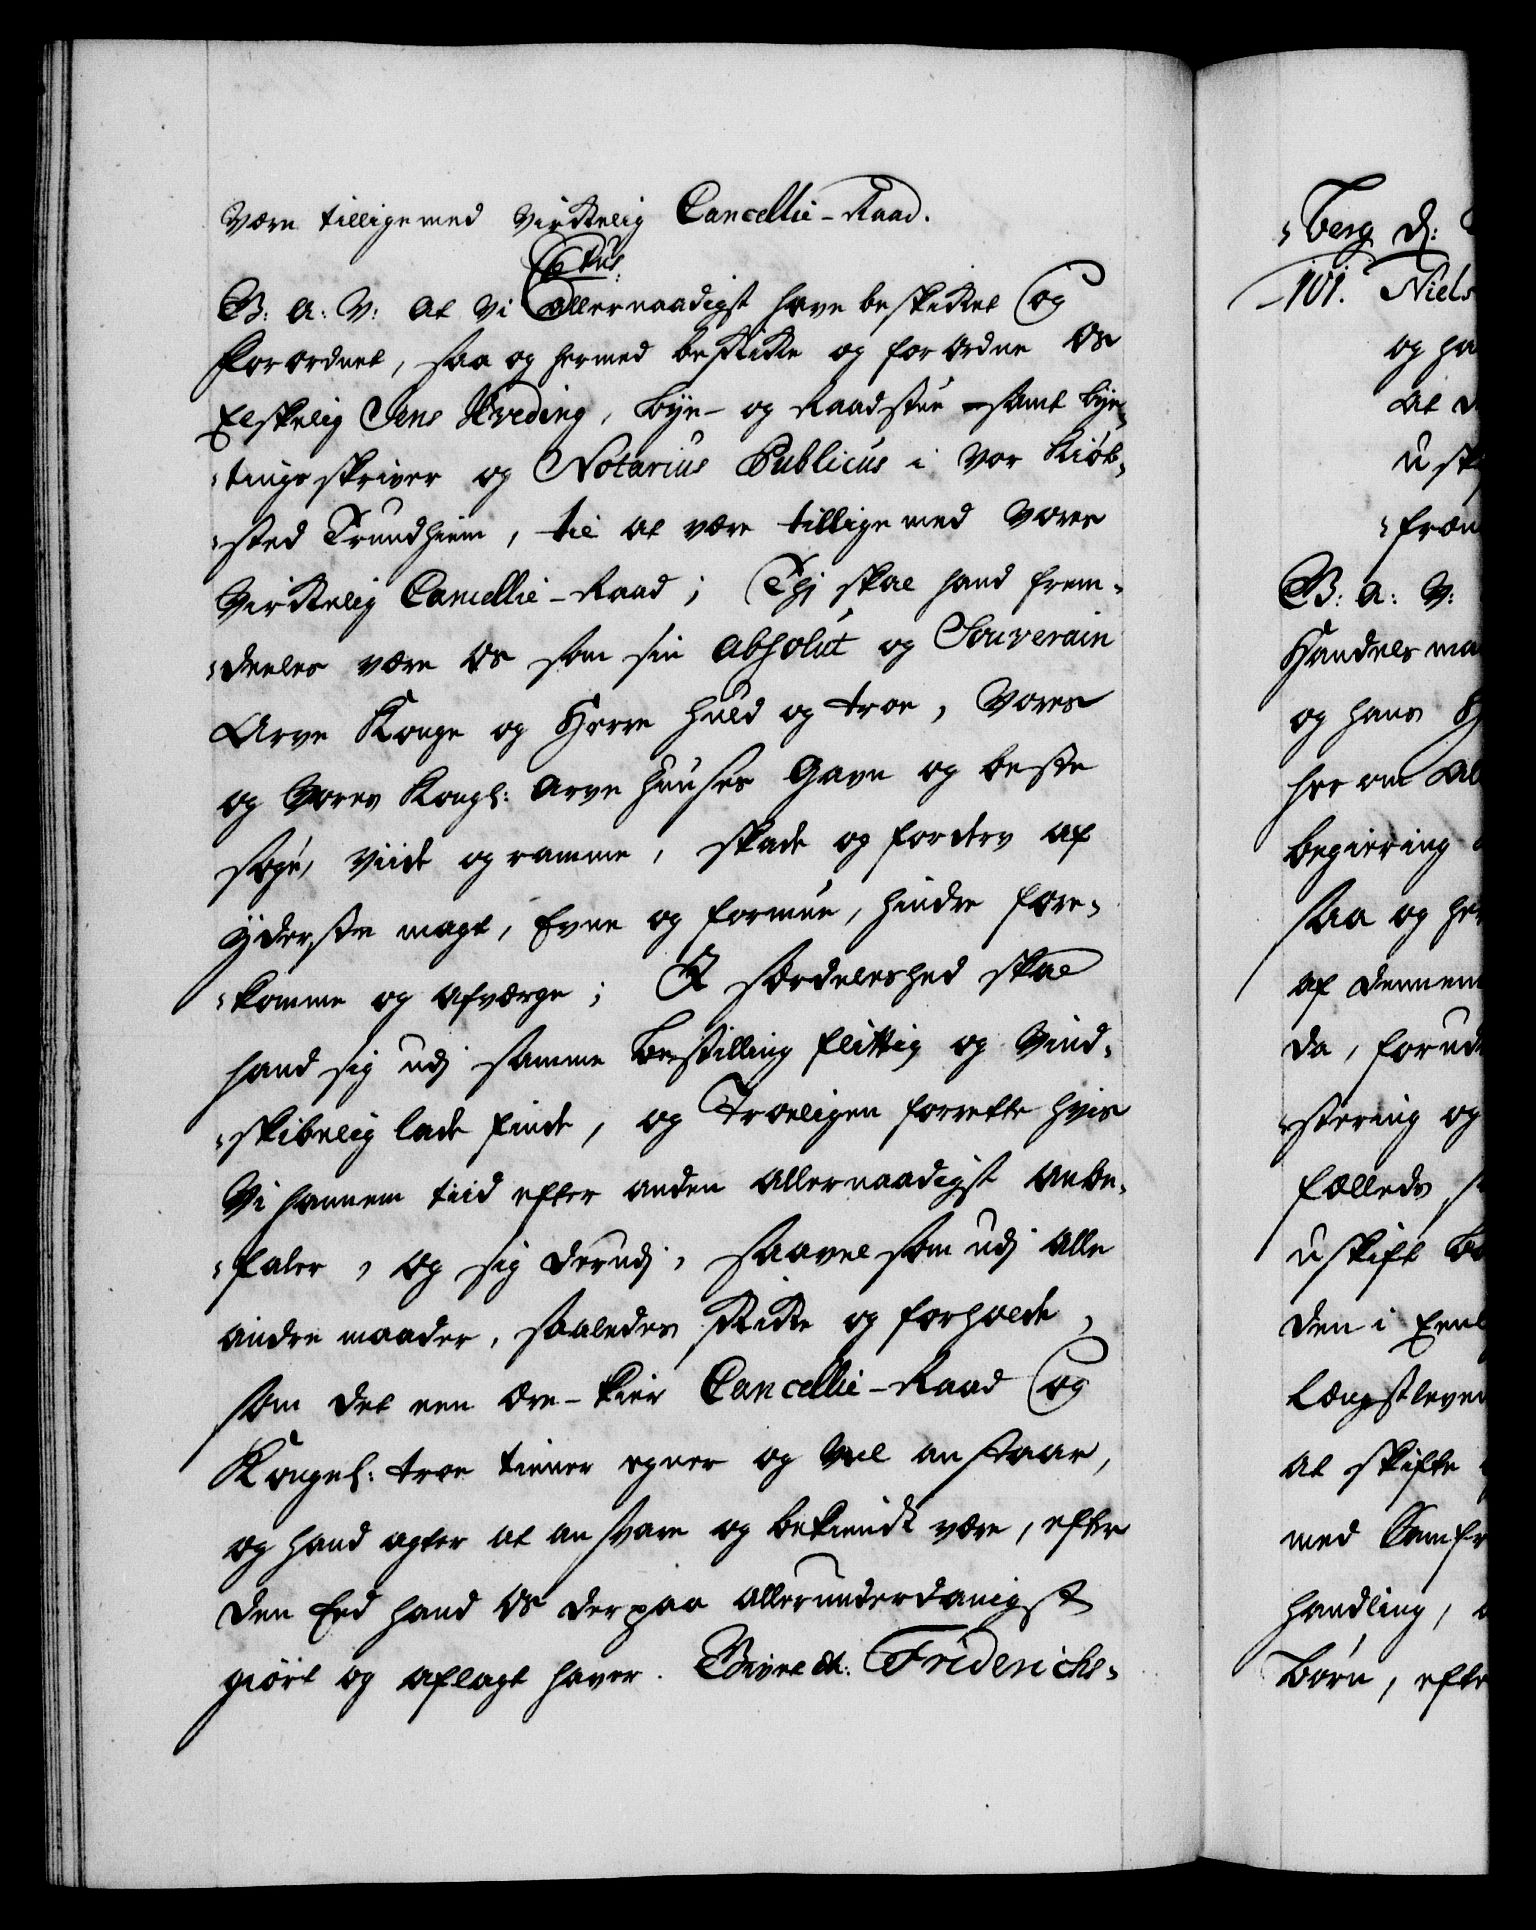 være tillige med virkelig Cancellie-Raad.
C tus:
G: A: V: at vi allernaadigst have beskikket og
forordnet, saa og hermed beskikke og forordne Os
Elskelig Jens Hveding, Bye- og Raadstue- samt bye-
tings skriver og Notarius Publicus i vor Kiøb-
sted Trundhiem, til at være tillige med vores
Virkelig Cancellie-Raad; Thj skal hand frem-
deeles være Os som sin Absolut og Souverain
Arve Konge og Herre huld og troe, Vores
og Vores Kongl: Arve Huuses Gavn og beste
søge, viide og ramme, skade og forderv af
yderste magt, Evne og formue, hindre fore-
komme og afværge; I særdeleshed skal
hand sig udj samme Bestilling flittig og Vind-
skibelig lade finde, og Troeligen forrette hvis
Vi hannem tiid efter anden allernaadigst anbe-
faler, og sig derudj, saavelsom udj alle
andre maader, saaledes skikke og forholde,
som det een ære-kier Cancellie-Raad og
Kongel: troe tiener egner og vel anstaar,
og hand agter at ansvare og bekiendt være, efter
den Eed hand Os derpaa allerunderdanigst
giørt og aflagt haver. Givet &: Friderichs-
berg d:
101. Niels
og ha
at d
u sk
fræn
G: A: V:
Handels ma
og hans H
her om al
begiering
saa og her
af dennem
da, forud
stering og
fælleds
uskift Bo
den i Eenl
længstleven
at skifte
med Samfr
handling,
Børn, efte